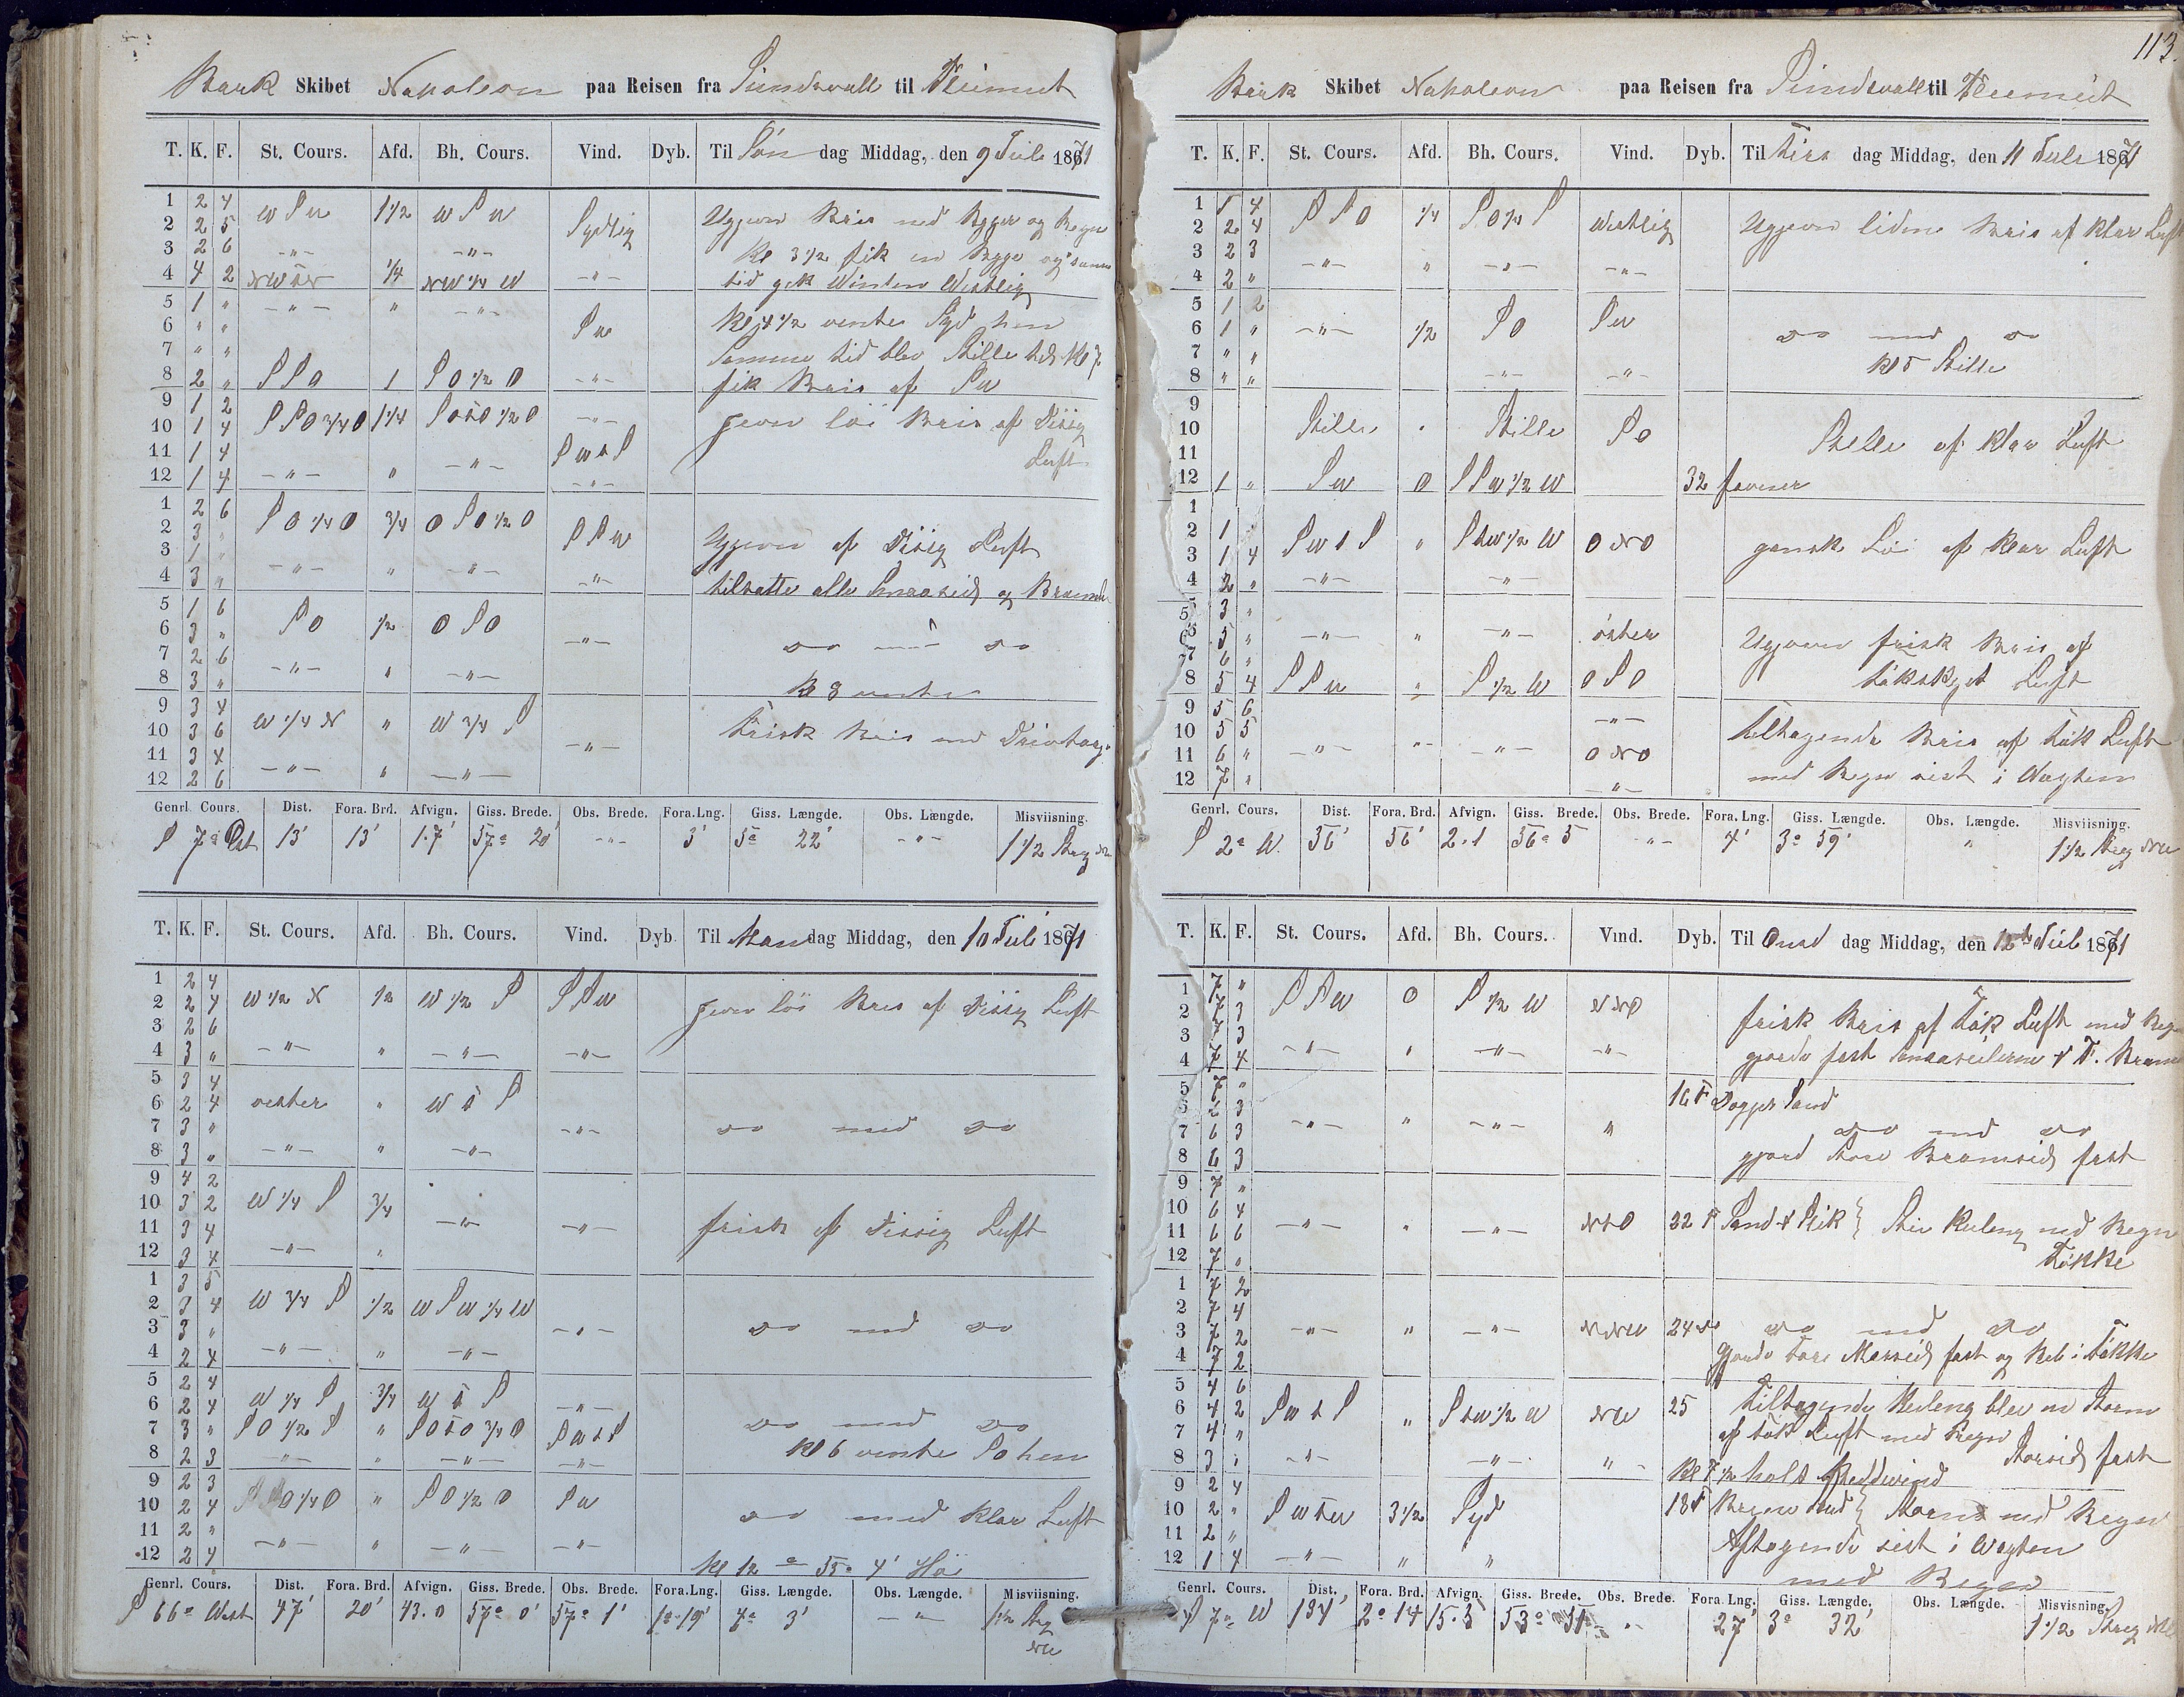 Bark Skibet Napoleon paa Reisen fra Sundsvall til Pleimut
T. K. F. St. Cours. Afd. Bh. Cours. Vind. Dyb. Til Søn dag Middag, den 9 Juli 1871
1 2 4
2 2 5 W S W 1 1/2 W S W Sydlig Ugjevn Bris med Bygger og Regn
3 2 6 -"- -"- Kl 3 1/2 fik en Byge og samme
4 4 2 NW 1/4 NW 1/4 W -"- tid gik Vinden Westlig
5 1 " -"- " -"- Kl 4 1/2 vente Syd hen
6 " " S W
7 " " Samme tid blev Stille til Kl 7
8 2 " S S O 1 S O 1/2 O -"- fik Bris af S W
9 1 2
10 1 4 S S O 3/4 O 1 1/4 S O t O 1/2 O -"- jevn löi Bris af Disig
11 1 4 S W t S Luft
12 1 4 -"- " -"- -"-
1 2 6
2 3 " S O 1/4 O 3/4 O S O 1/2 O S S W
3 1 " Ugjevn af Disig Luft
4 3 " -"- " -"- -"- tilsatte alle Smaaseil og Bram
5 1 6
6 3 " S O 1/2 O S O -"-
7 2 6 do med do
8 3 " -"- " -"- Kl 8 vente
9 3 4
10 3 6 W 1/4 N " W 3/4 S -"- Frisk Bris med
11 3 4
12 2 6 -"- " -"-
Genrl. Cours. Dist. Fora. Brd. Afvign. Giss. Brede. Obs. Brede. Fora. Lng. Giss. Længde. Obs. Længde. Misviisning.
S 7° Ost 13' 13' 1.7' 57° 20' -"- 3' 5° 22' -"- 1 1/2 Streg NW
T. K. F. St. Cours. Afd. Bh. Cours. Vind. Dyb. Til Man dag Middag, den 10 Juli 1871
1 2 4
2 2 4 W 1/2 N 1/2 W 1/2 S S S W jevn löi Bris af Disig Luft
3 2 6
4 3 " -"- " -"- -"-
5 3 4
6 2 4 vester " W t S
7 3 " -"- do med do
8 3 " -"- " -"-
9 4 2
10 3 2 W 1/4 S 3/4
11 3 4 -"- -"- frisk af Dissig Luft
12 3 4 -"- "
1 3 5
2 3 4 W 3/4 S 1/2 W S W 1/4 W
3 3 " -"- do med do
4 2 4 -"- " -"-
5 2 4
6 2 4 W 1/4 S 3/4 W t S -"-
7 3 " S O 1/2 S " S O t O 3/4 O S W t S do med do
8 2 3 -"- " -"- -"- Kl 6 vente S o hen
9 2 3
10 2 4 S S O 1/4 O " S O 1/2 O S W
11 2 " do med Klar Luft
12 2 4 -"- " -"- -"- Kl 12 = 55° 4' Hö
Genrl. Cours. Dist. Fora. Brd. Afvign. Giss. Brede. Obs. Brede. Fora. Lng. Giss. Længde. Obs. Længde. Misviisning.
S 66° West 47' 20' 43.0 57° 0' 57° 1' 1° 19' 4° 3' -"- 1 1/2 Streg NW
113
Bark Skibet Napoleon paa Reisen fra Sundsvall til Pleimut
T. K. F. St. Cours. Afd. Bh. Cours. Vind. Dyb. Til Tirs dag Middag, den 11 Juli 1871
1 1 4
2 2 4 S S O 1/4 S O 1/4 S Westlig Ugjevn liden Bris af klar Luft
3 2 3
4 2 " -"- " -"- -"-
5 1 2
6 1 " -"- 1/2 S O S W do med do
7 " " Kl 5 Stille
8 " " -"- -"-
9
10 Stille " Stille S O Stille af klar Luft
11
12 1 " S W 0 S S W 1/2 W 32 favner
1
2 1
3 1 4 S W t S " S S W 1/2 W O N O gansk Löi af klar Luft
4 2 " -"- -"-
5 3 "
6 5 " -"- " -"- öster Ugjevn frisk Bris af
7 6 "
8 5 4 S S W " S 1/2 W O S O tökskyet Luft
9 5 6
10 5 5 -"- tiltagende Bris af tök Luft
11 6 " -"- " -"- O N O
12 7 " -"- med Regn sist i Vagten
Genrl. Cours. Dist. Fora. Brd. Afvign. Giss. Brede. Obs. Brede. Fora. Lng. Giss. Længde. Obs. Længde. Misviisning.
S 2° W. 56' 56' 2.1 56° 5 -"- 4' 3° 59' " 1 1/2 Streg NW
T. K. F. St. Cours. Afd. Bh. Cours. Vind. Dyb. Til Onsd dag Middag, den 12te Juli 1871
1 7 "
2 7 3 S S W 0 S 1/2 W N N O frisk Bris af Tök Luft med Regn
3 7 3
4 7 4 -"- " -"- -"- gjorde fast Smaaseilerne & F. Bram
5 7 " 16 F Dogger Sand
6 6 3
7 6 3 -"- " -"- " do med do
8 6 3 gjord Store Bramseil fast
9 7 "
10 6 4
11 6 6 -"- " -"- N t O 22 F Sand & Slik } Stiv Kuling med Regn
12 7 " Tökke
1 7 2
2 7 4
3 7 2 -"- " -"- N N W 24 do do med do
4 7 2 gjorde Fore Merseil fast og Reb i Tökke
5 4 6
6 4 2 S W t S " S S W 1/2 W N W 25 tiltagende Kuling blev en Storm
7 4 " af tök Luft med Regn
8 3 " -"- -"- " Storseil fast
9 2 4 Kl 7 1/2 holt
10 2 " S W t W 3 1/2 Syd 18 F Storm med Regn
11 2 " Aftagende sist i Vagten
12 1 4 -"- " " med Regn
Genrl. Cours. Dist. Fora. Brd. Afvign. Giss. Brede. Obs. Brede. Fora. Lng. Giss. Længde. Obs. Længde. Misvisning.
S 7° W 134' 2° 14 15.5 53° 51 -"- 27' 3° 32' 1 1/2 Streg NW